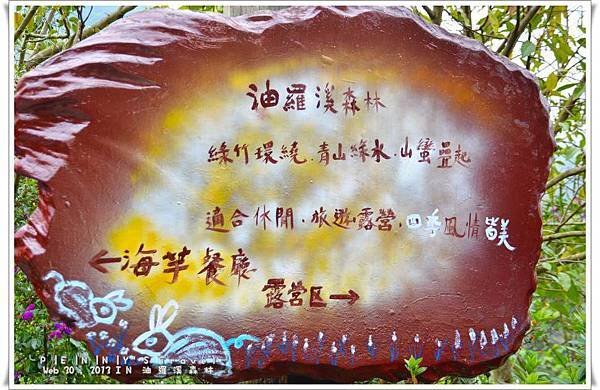 油羅溪森林
綠竹環繞.青山綠水.山巒疊起
適合休閒.旅遊.露營.四季風情皆美
←海芋餐廳
露營区→
PEINNIY
Web 20, 2013 IN 油羅溪森林